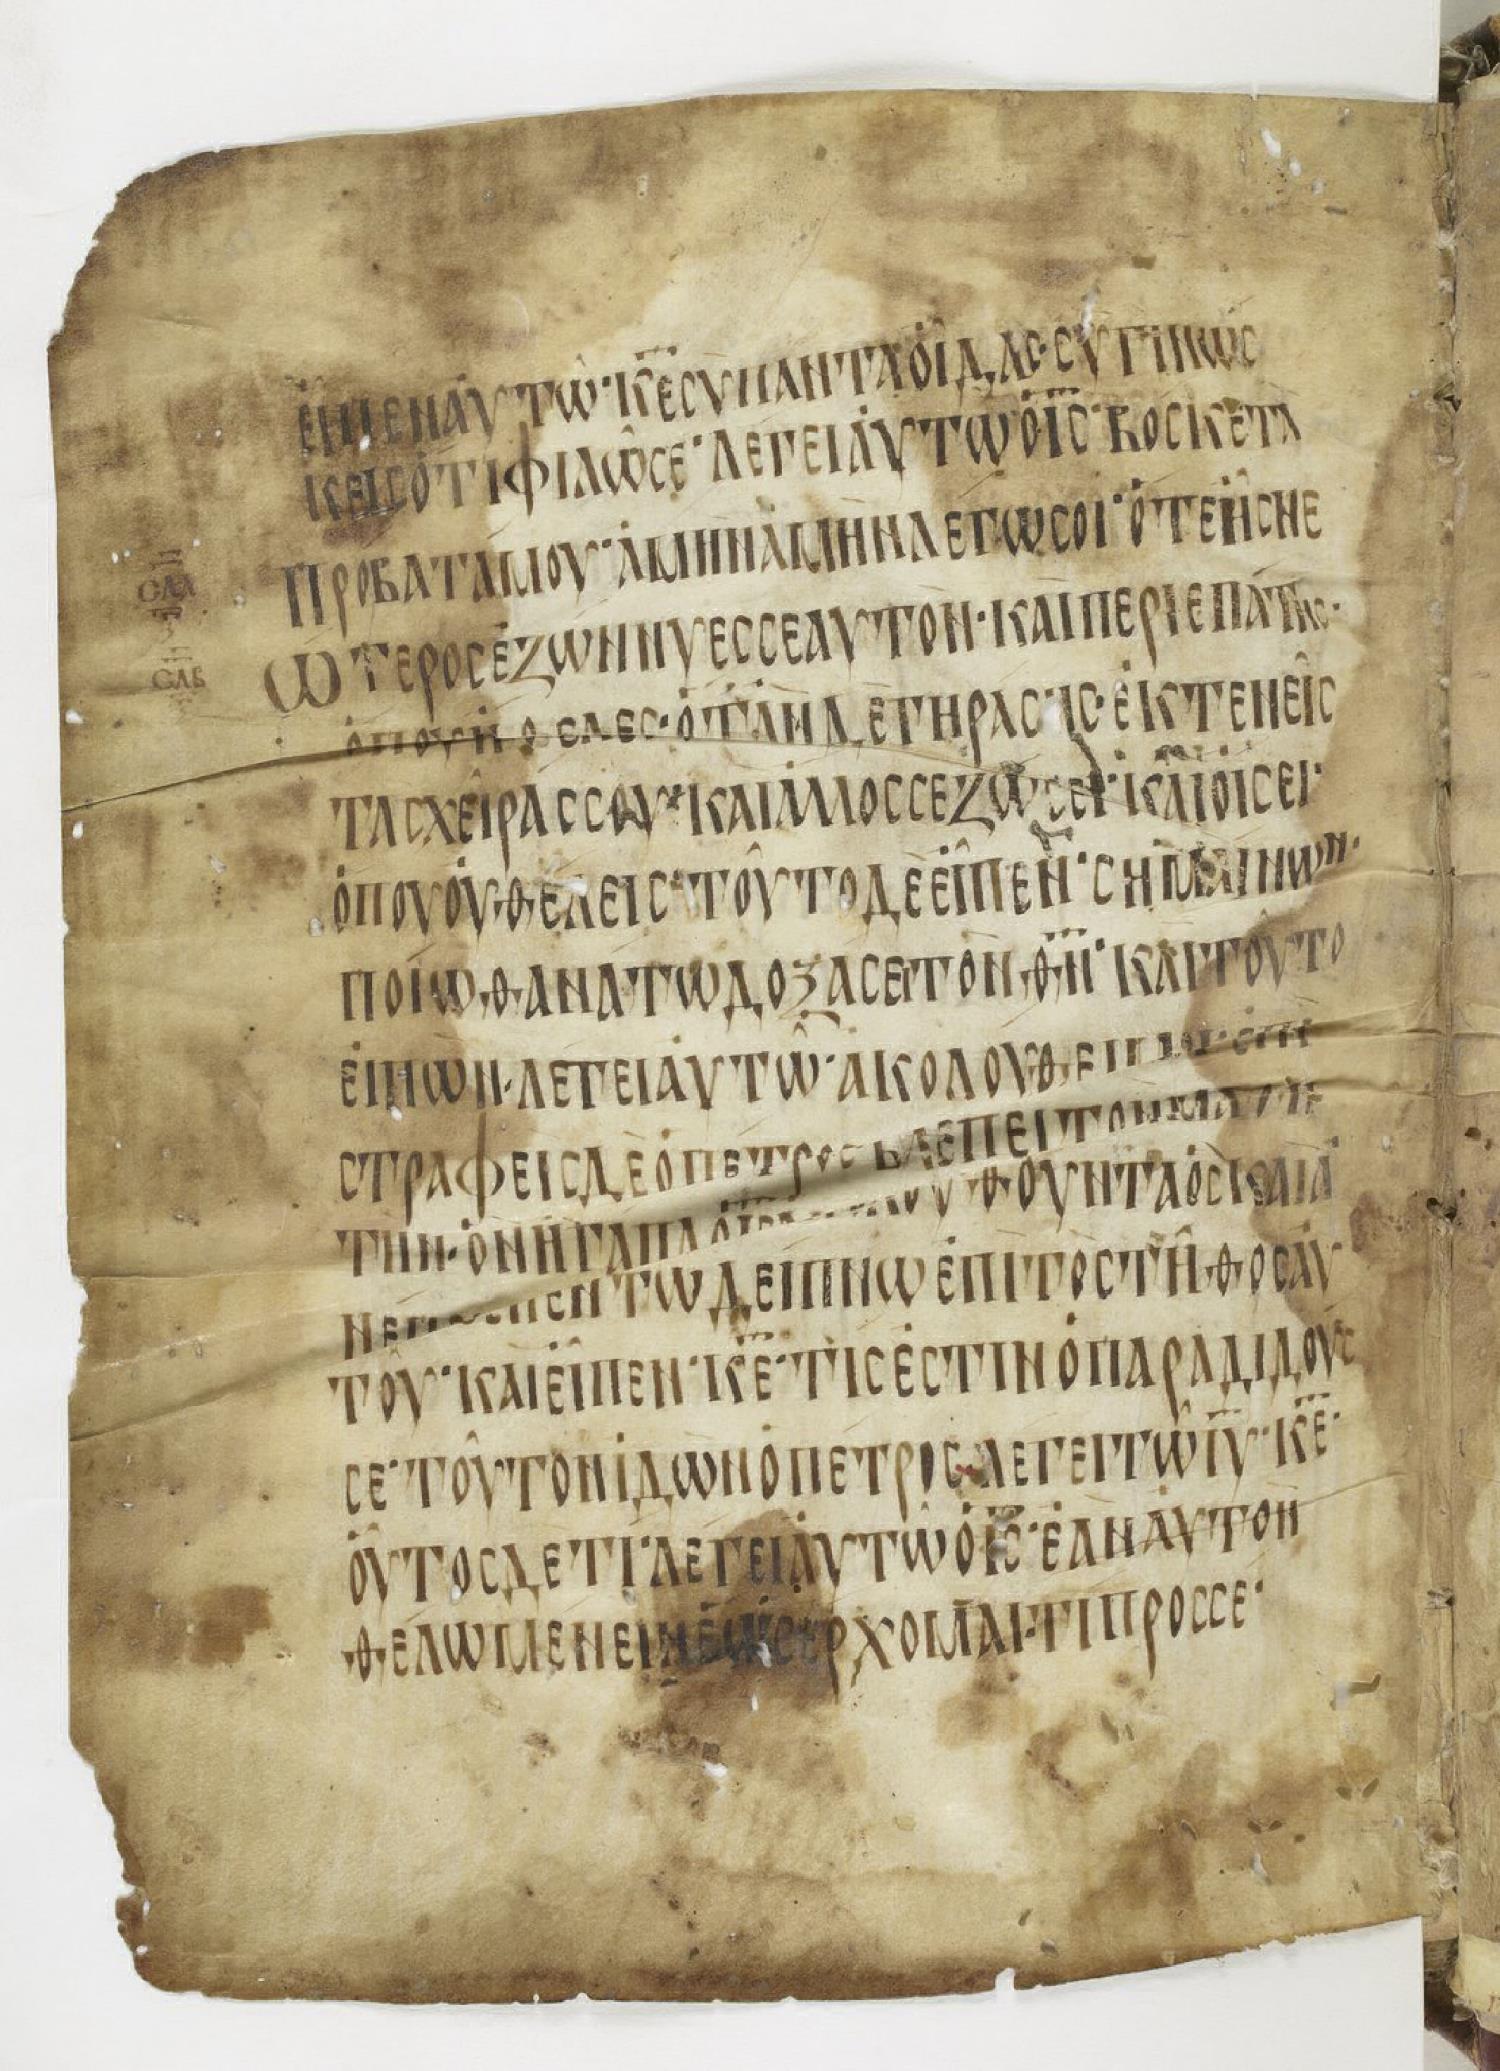 ἐίπεναυτῶ· κ̅ε̅ συπανταοἶδασ· συγινωσ
κεισὁτιφιλῶσε· λεγειἀυτωὁι̅σ̅· βοσκετα
προβαταμου· ἀμηνἀμηνλεγωσοι· ὁτεἦσνε
σ̅λ̅α̅
ωτεροσἐζωννυεσσεαυτον· καιπεριεπατησ·
σ̅λ̅β̅
ὁπουἠθελεσ· ὁτανδεγηρασισ· ἐκτενεῖσ
τασχεῖρασσου· καιἀλλοσσεζωσει· κἀιὀισει·
ὁπουὀυθελεισ· τοῦτοδεεἶπεν· σημαινων·
ποιωθανατωδοξασειτονθ̅ν̅· καιτοῦτο
ἐιπων· λεγειἀυτῶ· ἀκολουθει
στραφεισδεὁπετροσβλεπειτονμαθη
την· ὁνἠγαπα θουνταὁσκαιἀ
εντωδειπνωἐπιτοστῆθοσἀυ
τοῦ· καιἐἶπεν· κ̅ε̅· τισἐστινὁπαραδιδουσ
σε· τοῦτονἰδωνὁπετροσ· λεγειτῶι̅υ̅· κ̅ε̅·
ὁῦτοσδετι· λεγειἀυτῶὁι̅σ̅· ἐἀνἀυτον
θελωμενεινἐωσἐρχομαι· τιπροσσε·